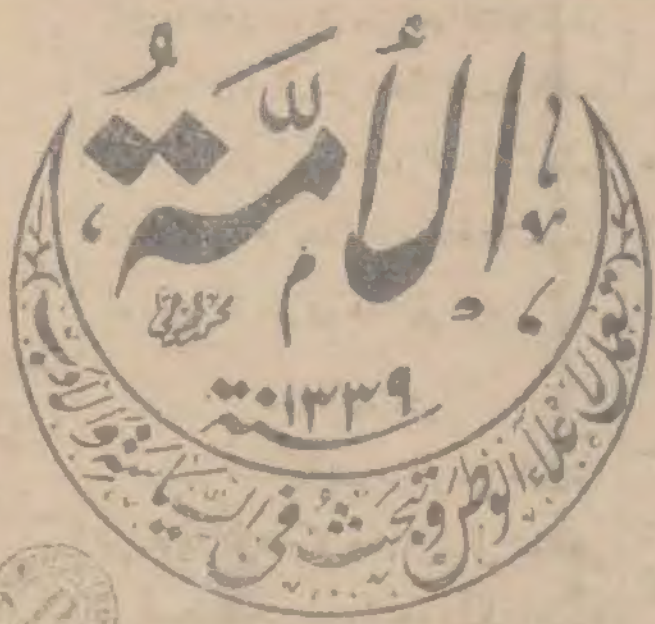 الأُمَّةُ
سنة ١٣٣٩
تعمل لاعلاء الوطن وتبحث في السياسة والآداب